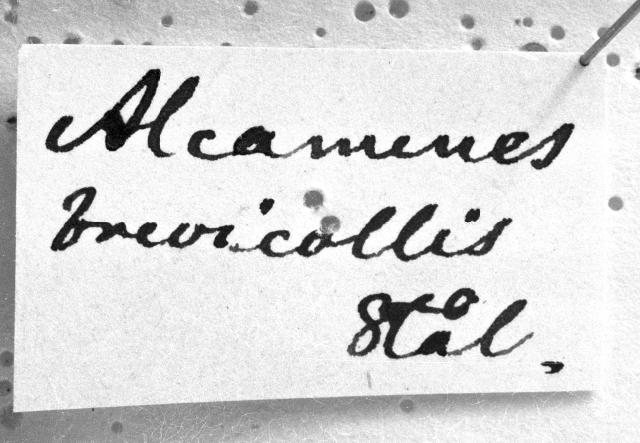 Alcamenes
brevicollis
Stål.